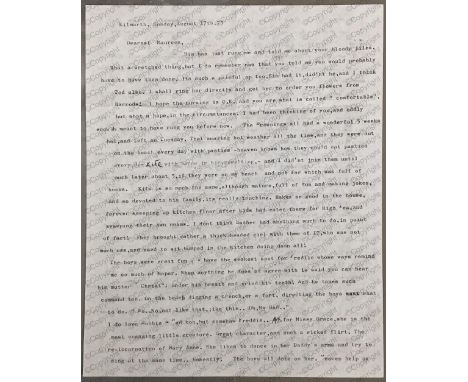 Kilmarth, Sunday, August 17th.75
Dearest Maureen,
has just rung me and told me about your bloody piles.
What a wretched thing, but I do remember now that you told me you would probably
have to have them done. Its such a painful op too, Bim had it, didn't he, and I think
Zed also. I shall ring Mr directly and get her to order you flowers from
Harrods. I hope the surgeon is O.K. and you are what is called " comfortable",
but what a hope, in the circumstances. I had been thinking of you, and oddly
enough meant to have rung you before now. The all had a wonderful 3 weeks
but, and left on Tuesday. That boiling hot weather all the time, and they were out
on the beach every day with pasties - heaven knows how they could eat pasties
every day and I didn't join them until
much later about 5, if they were on my beach and not far which was full of
hordes. Kits is so much the same, although mature, full of fun and making jokes,
and so devoted to his family, its really touching. Makes so good in the house,
forever sweeping up kitchen floor after kids had eaten there for high tea, and
sweeping their own rooms. I dont think Esther had anything much to do, in point
of fact! They brought rather a thick-headed girl with them of 17, who was not
much use, and used to sit humped in the kitchen doing damn all!
The boys were great fun - I have the weakest spot for Freddie whose ways remind
me so much of Moper. When anything he does not agree with is said you can hear
him mutter " Christ" under his breath and
command too. On the beach digging a trench, or a fort, directing the boys what
to do. " No, No, not like that, like this.. Oh, My God.."
I do love Robbie and too, but somehow Freddie... As for Missy Grace, she is the
most engaging little creature. Great character, and such a wicked flirt. The
re-incarnation of Mary Anne. She likes to dance in her Daddy's arms and try to
sing at the same time, demently. The boys all dote on her, loves help